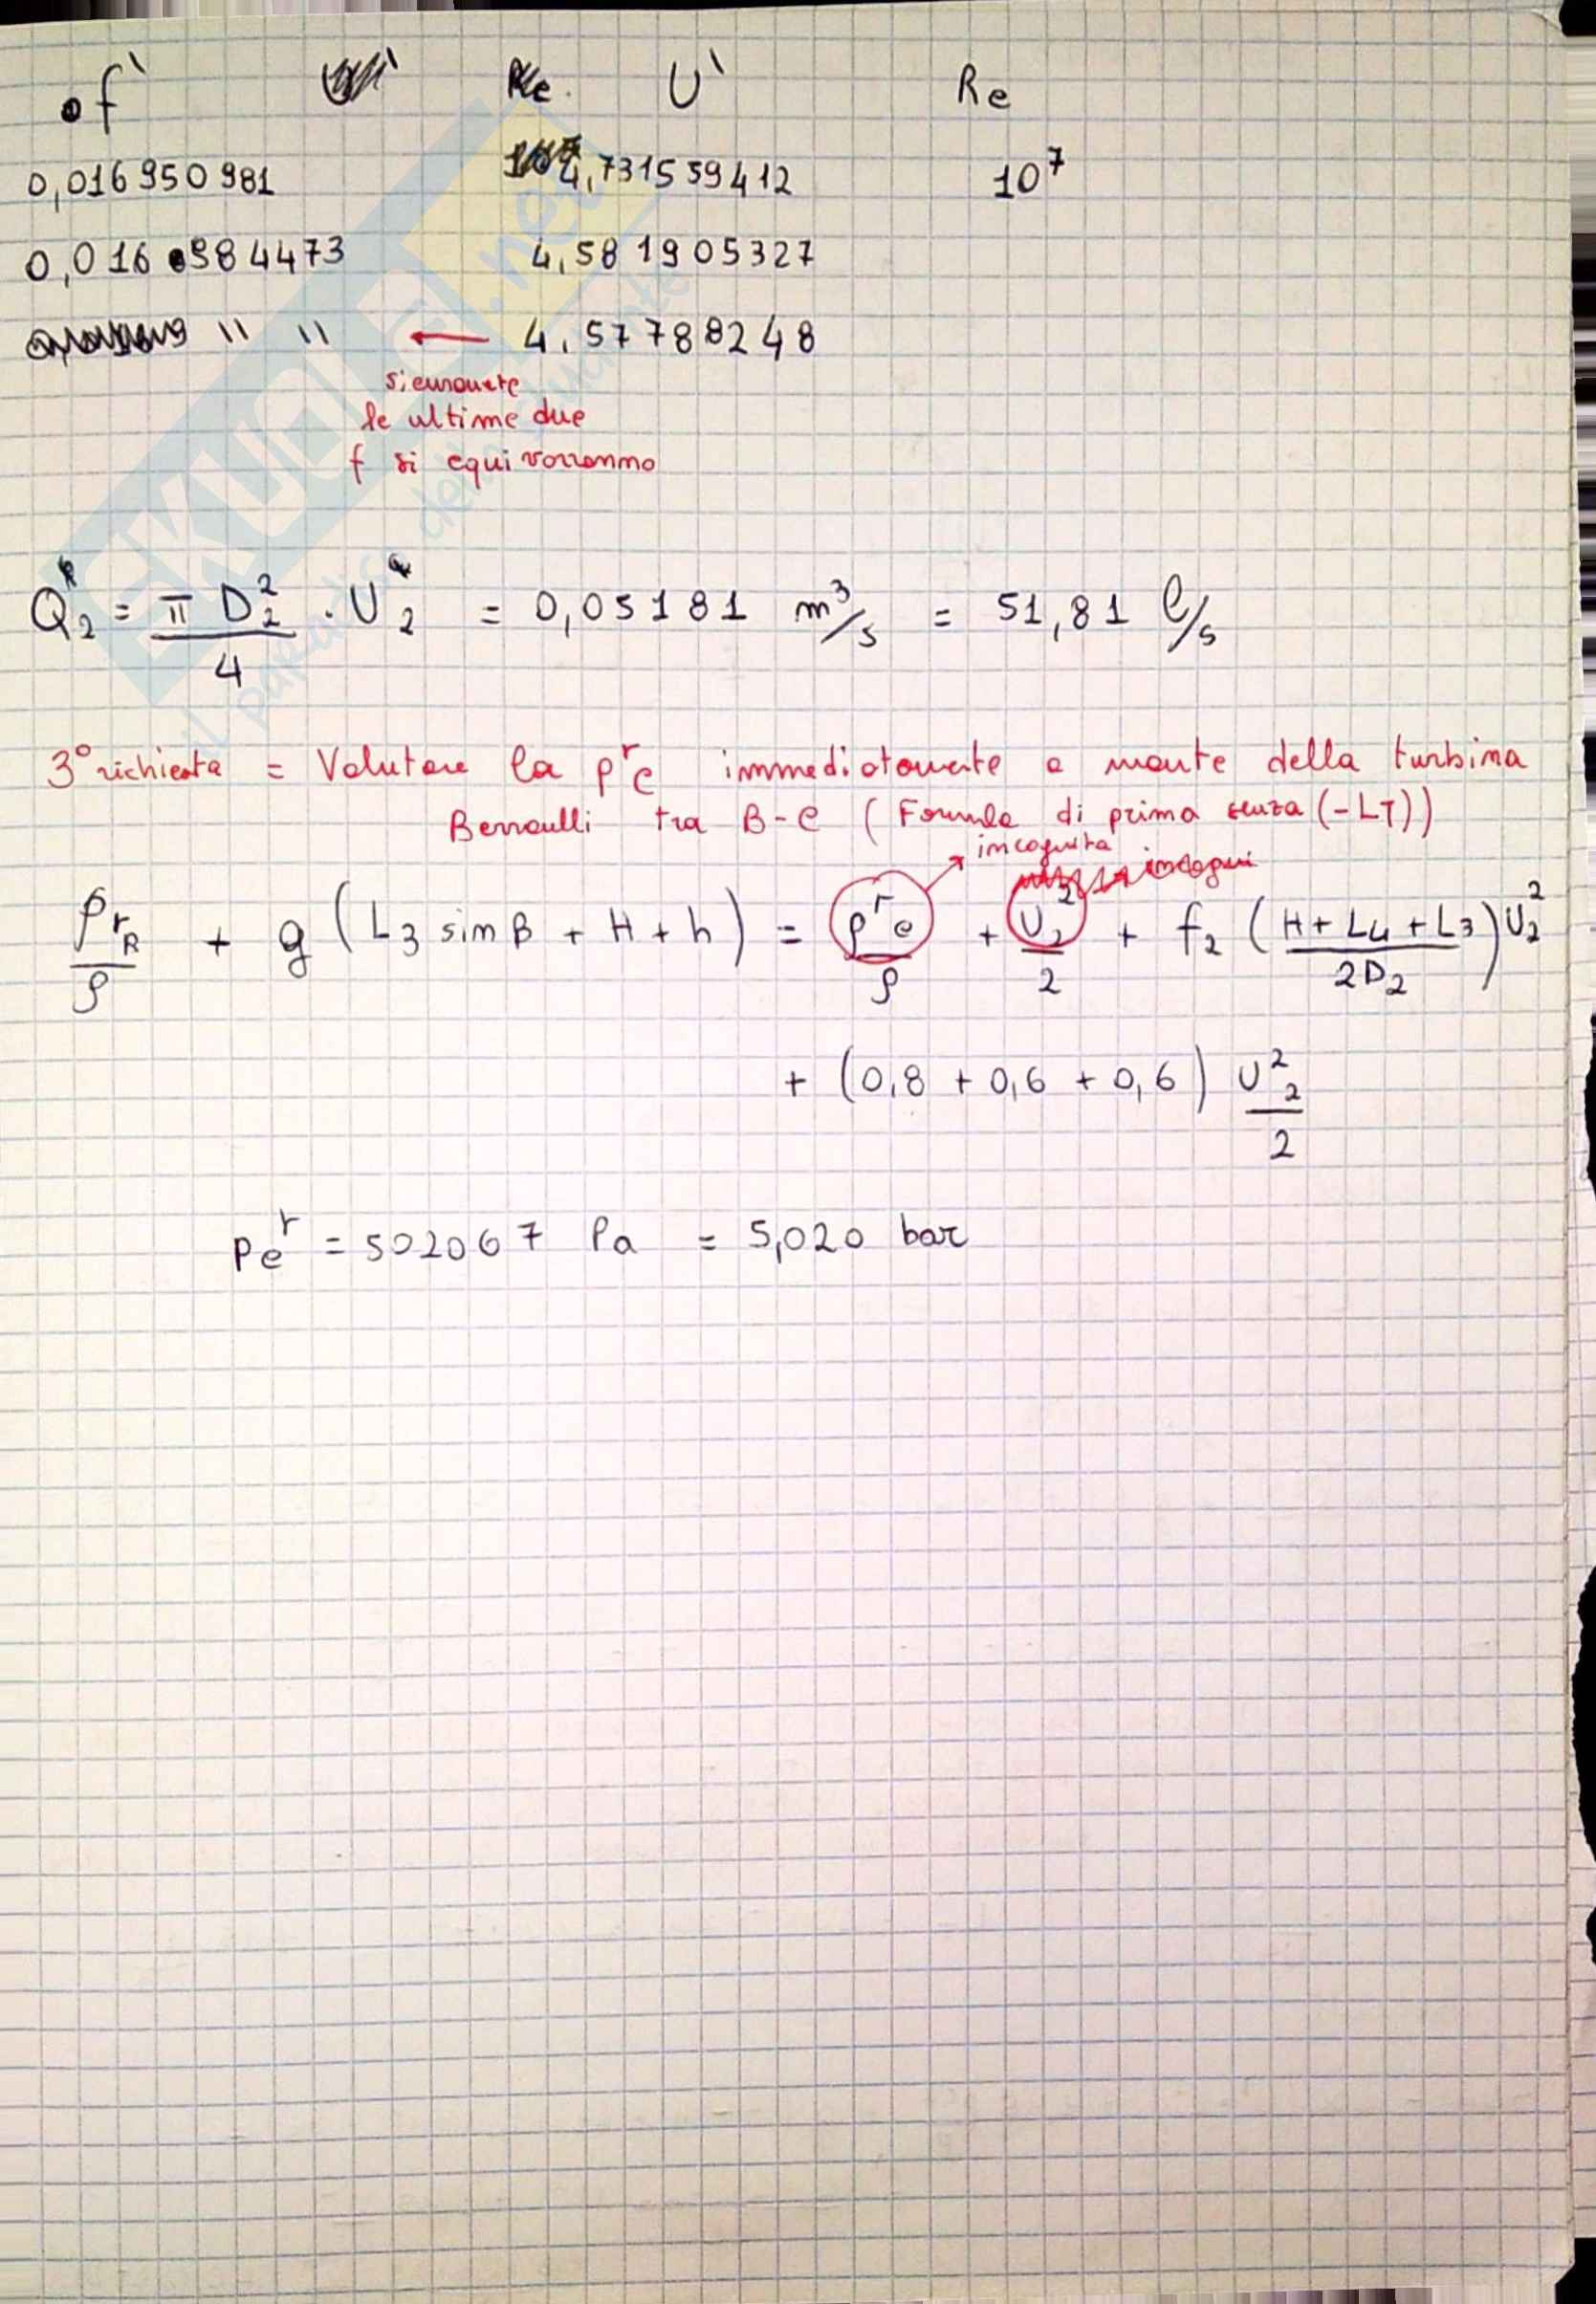 f' U' Re
0,016950981 4,731559412 10⁷
0,016984473 4,581905327
" " ← 4,57788248
sicuramente
le ultime due
f si equivarranno
Q₂ = π D₂² / 4 · U₂ = 0,05181 m³/s = 51,81 l/s
3° richiesta = Valutare la pʳe immediatamente a monte della turbina
Bernoulli tra B-e (Formula di prima senza (-LT))
incognita
incogni
pʳ_R / ρ + g (L₃ sin β + H + h) = pʳe / ρ + U₂² / 2 + f₂ (H + L₄ + L₃ / 2D₂) U₂²
+ (0,8 + 0,6 + 0,6) U₂² / 2
peʳ = 502067 Pa = 5,020 bar
SKUOLA.net
il paradiso dello studente